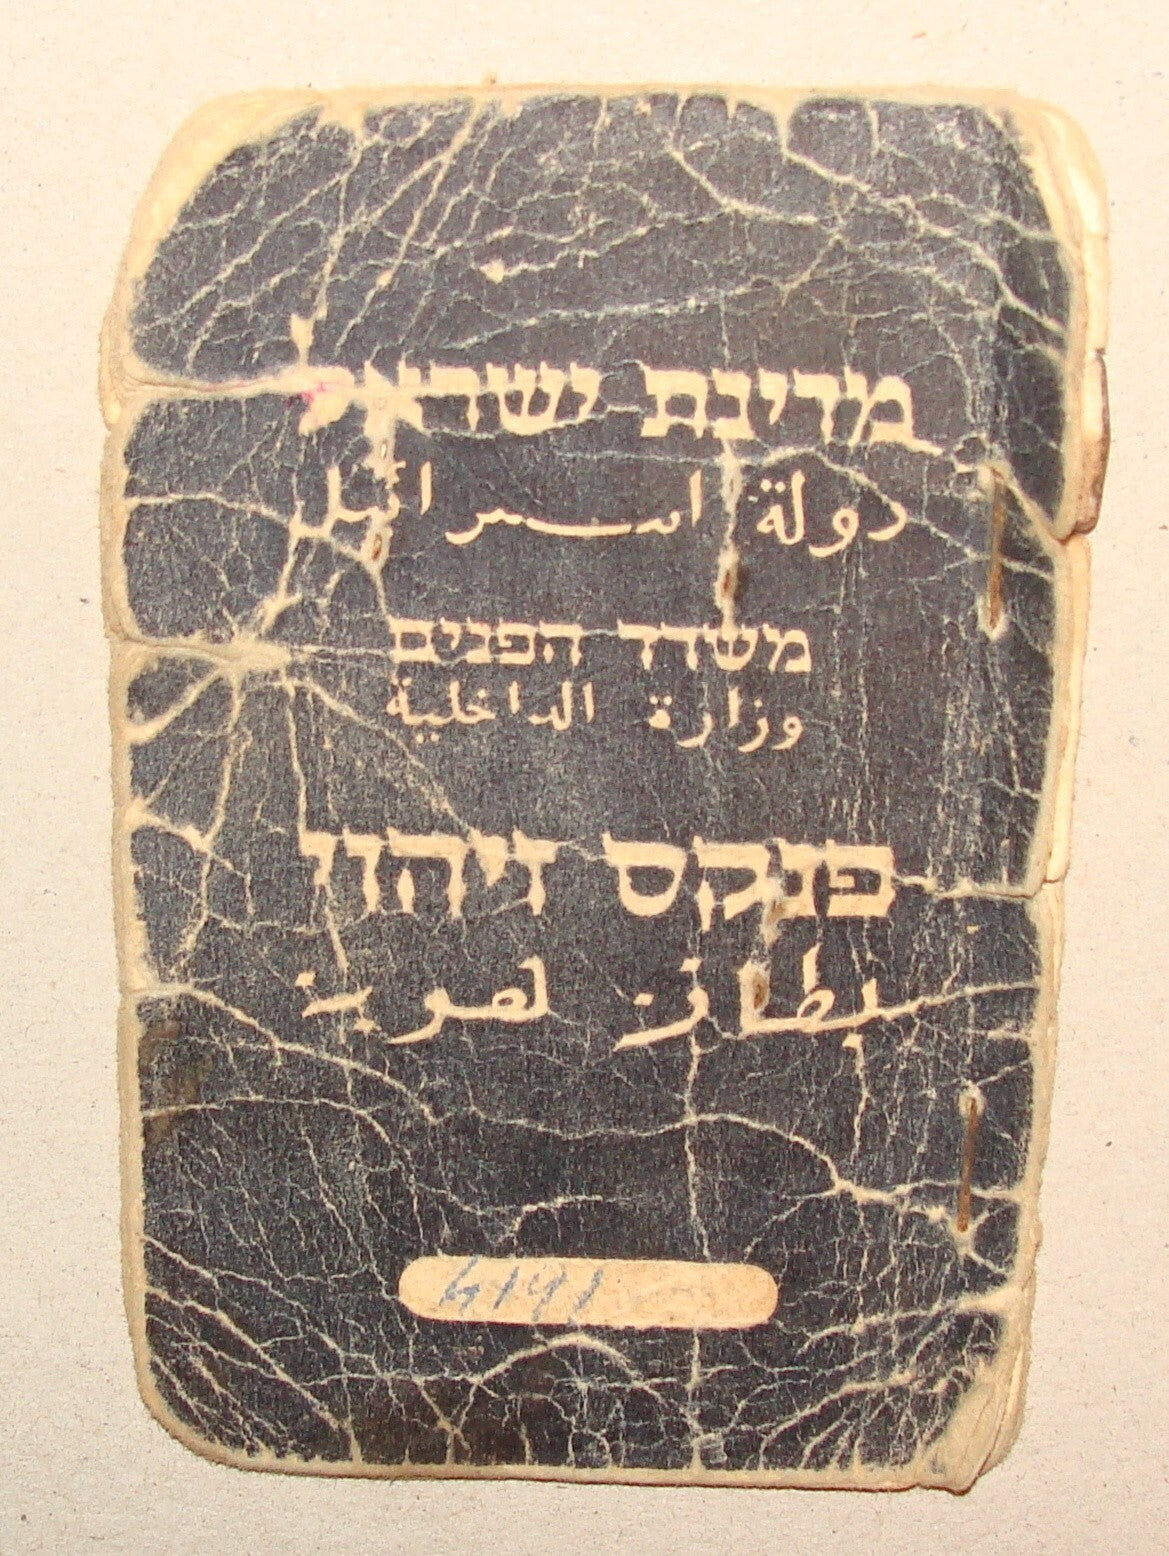 מדינת ישראל
دولة اسرائيل
משרד הפנים
وزارة الداخلية
פנקס זיהוי
بطاقة لهوية